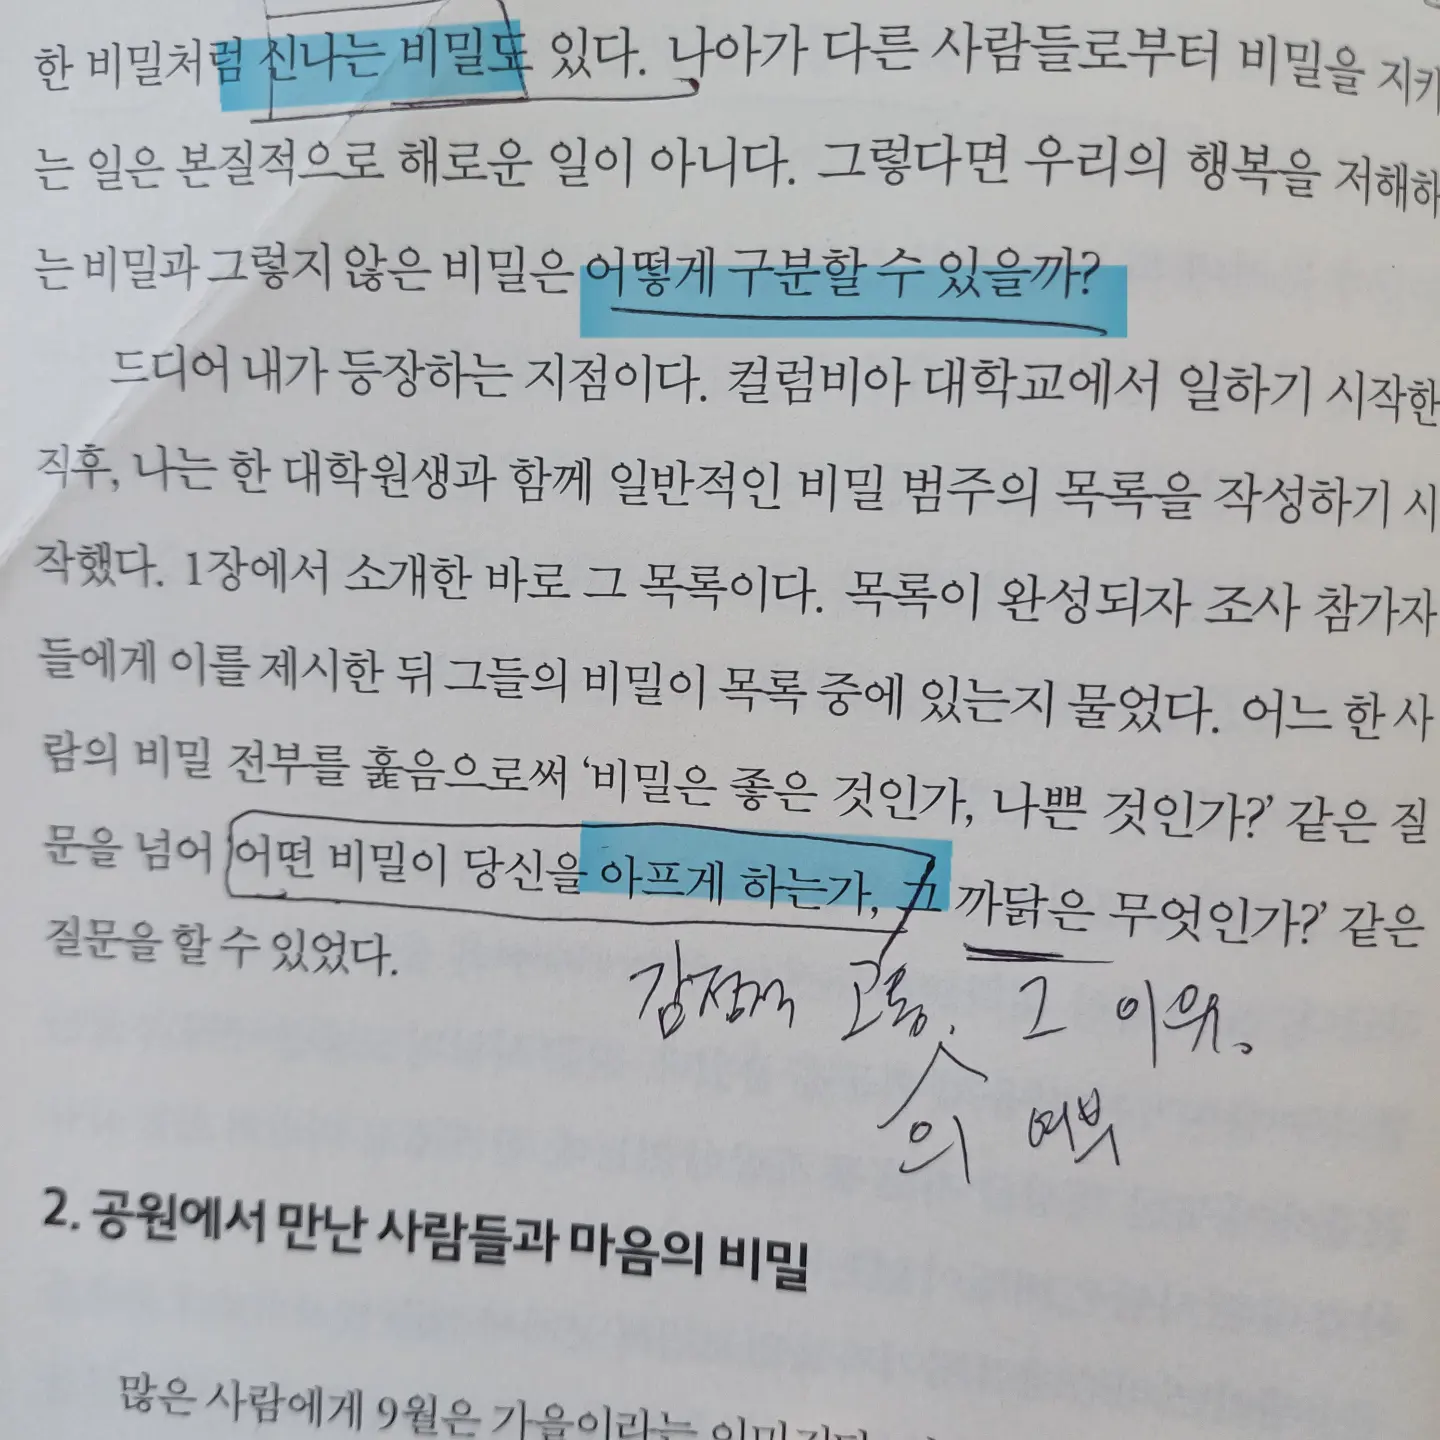 한 비밀처럼 신나는 비밀도 있다. 나아가 다른 사람들로부터 비밀을 지키
는 일은 본질적으로 해로운 일이 아니다. 그렇다면 우리의 행복을 저해하
는 비밀과 그렇지 않은 비밀은 어떻게 구분할 수 있을까?
드디어 내가 등장하는 지점이다. 컬럼비아 대학교에서 일하기 시작한
직후, 나는 한 대학원생과 함께 일반적인 비밀 범주의 목록을 작성하기 시
작했다. 1장에서 소개한 바로 그 목록이다. 목록이 완성되자 조사 참가자
들에게 이를 제시한 뒤 그들의 비밀이 목록 중에 있는지 물었다. 어느 한 사
람의 비밀 전부를 훑음으로써 ‘비밀은 좋은 것인가, 나쁜 것인가?’ 같은 질
문을 넘어 ‘어떤 비밀이 당신을 아프게 하는가, 그 까닭은 무엇인가?’ 같은
질문을 할 수 있었다.
감정적 고통. 그 이유.
의 여부
2. 공원에서 만난 사람들과 마음의 비밀
많은 사람에게 9월은 가을이라는